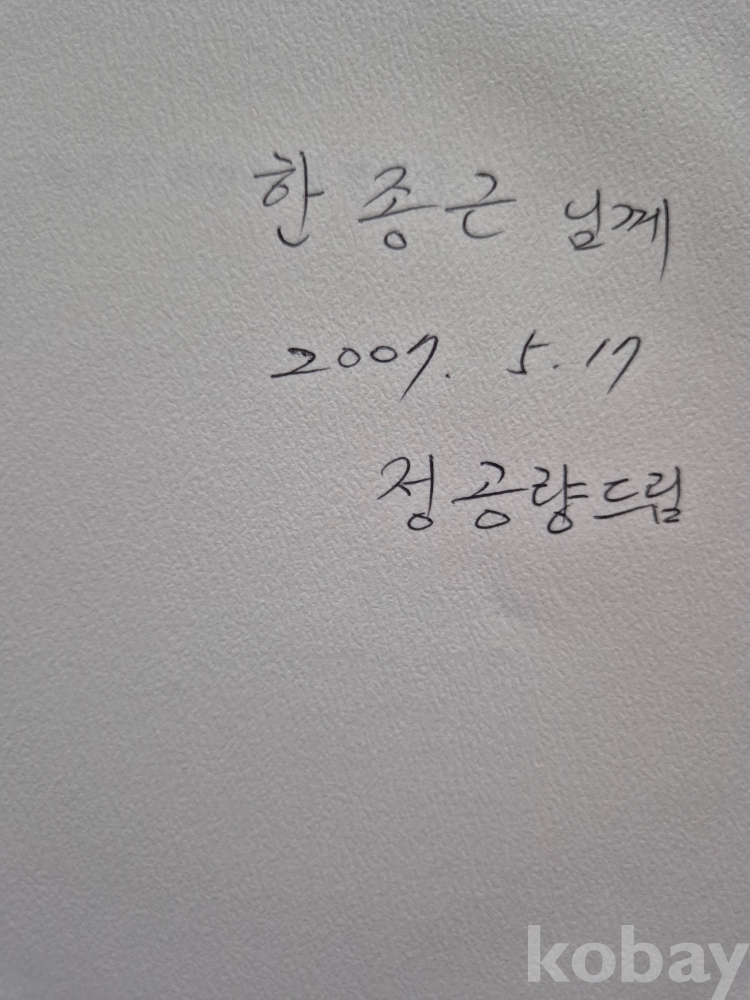 한 종근 님께
2007. 5. 17
정공량드림
kobay